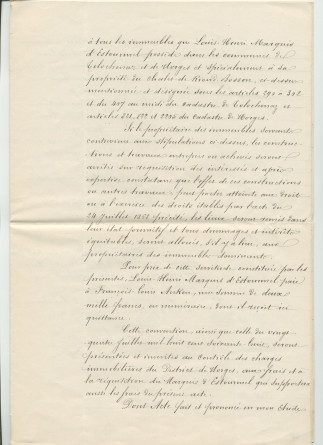 à tous les immeubles que Louis Henri Marquis
d'Estournel possède dans les communes de
Tolochenaz et de Morges et spécialement à sa
propriété du Chalet de Riond Bosson, ci-dessus
mentionnée et désignée sous les articles 291 à 302
et du 407 au midi du cadastre de Tolochenaz et
articles et 2205 du cadastre de Morges.
Si le propriétaire des immeubles servants
contrevient aux stipulations ci-dessus, les construc-
tions et travaux entrepris ou achevés seront
arrêtés sur réquisition des intéressés si après
expertise constatant que l'effet de ces constructions
ou autres travaux porter atteinte aux droits
ou à l'exercice des droits établis par l'acte du
24 juillet 1861 précité, les lieux seront remis dans
leur état primitif et tous dommages et intérêts
équitables, seront alloués, s'il y a lieu, aux
propriétaires des immeubles dominants.
Pour prix de cette servitude constituée par les
présentes, Louis Henri Marquis d'Estournel paie
à François Louis une somme de deux
mille francs, en numéraire, dont il reçoit ici
quittance.
Cette convention, ainsi que celle du vingt-
quatre juillet mil huit cent soixante-un, seront
présentées et inscrites au contrôle des charges
immobilières du District de Morges, aux frais et à
la réquisition du Marquis d'Estournel qui supportera
aussi les frais du présent acte.
Dont Acte fait et prononcé en mon étude